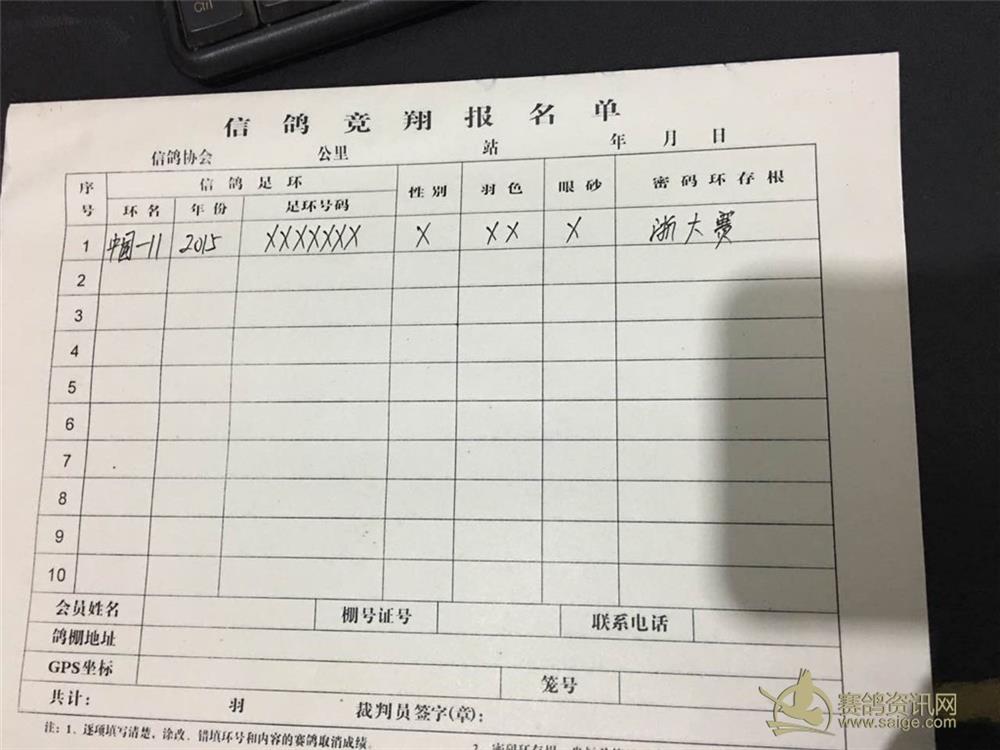 Ctrl
信鸽竞翔报名单
信鸽协会 公里 站 年 月 日
序号 信鸽足环 性别 羽色 眼砂 密码环存根
环名 年份 足环号码
1 中国-11 2015 XXXXXXX X XX X 浙大赛
2
3
4
5
6
7
8
9
10
会员姓名 棚号证号 联系电话
鸽棚地址
GPS坐标 笼号
共计: 羽 裁判员签字(章):
注:1、逐项填写清楚,涂改、错填环号和内容的赛鸽取消成绩。 2、密码环
赛鸽资讯网
www.saige.com